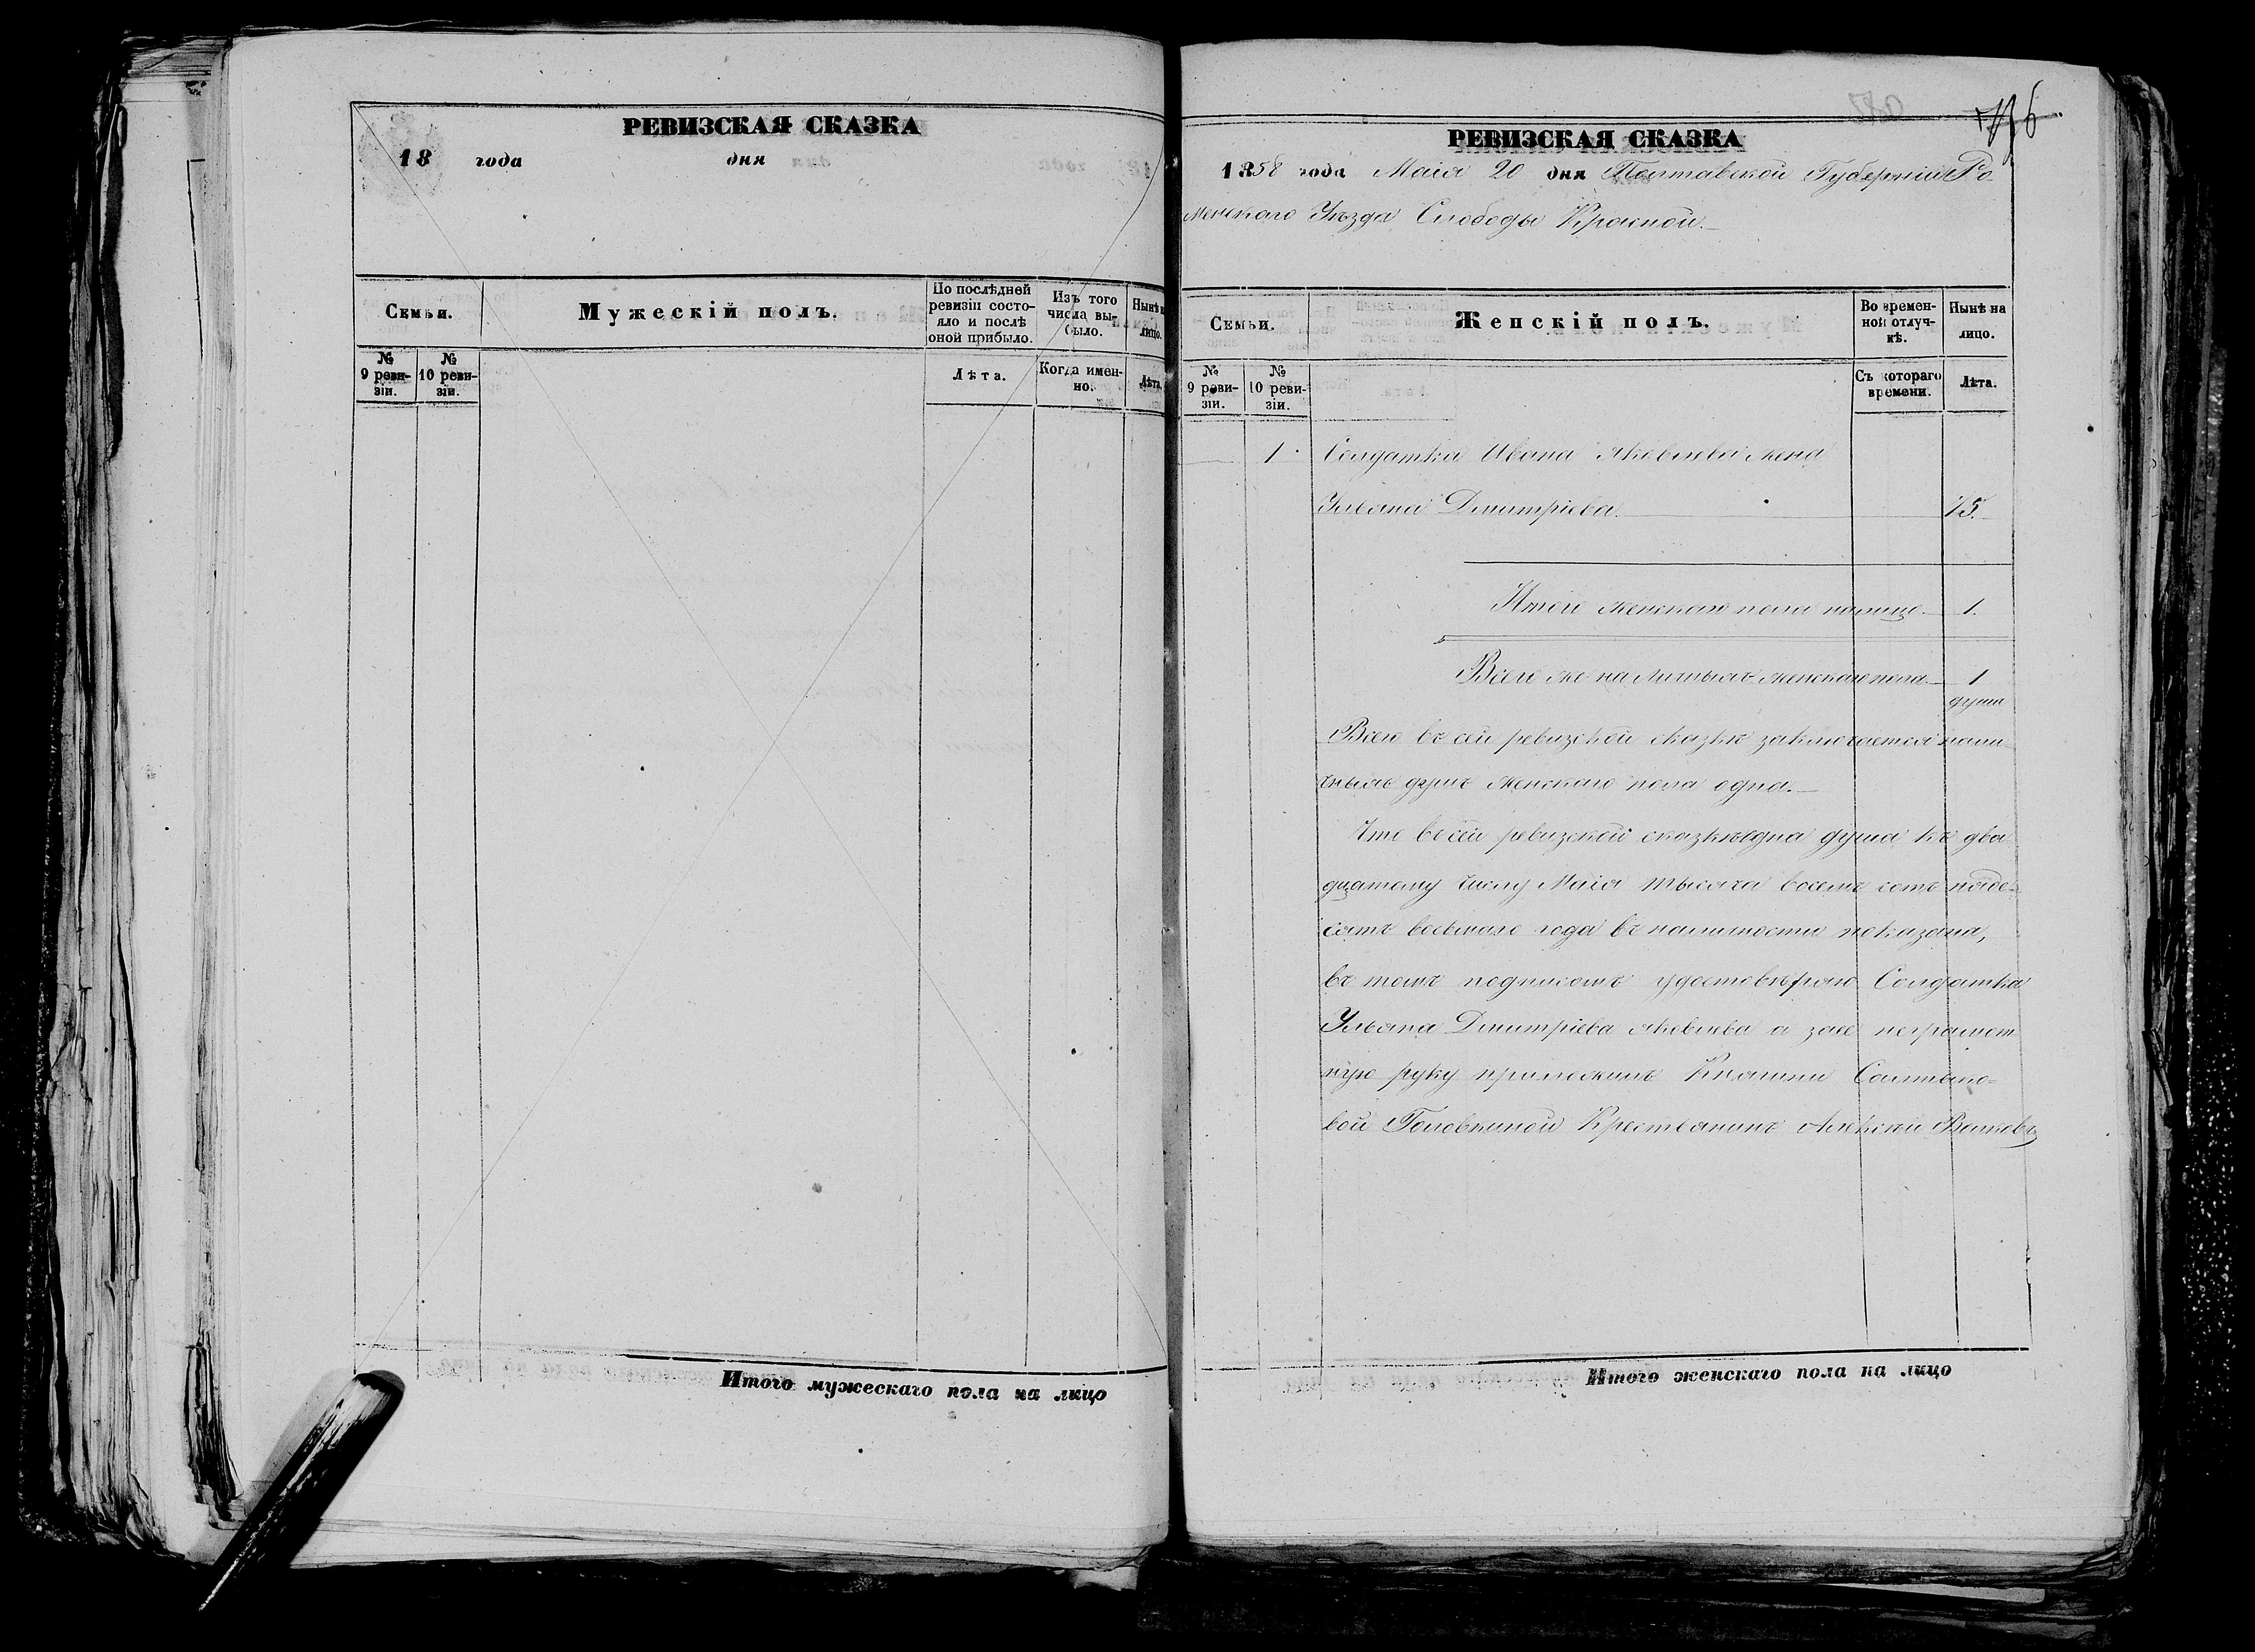 РЕВИЗСКАЯ СКАЗКА
18 года дня
Семьи.
Мужескій полъ.
По послѣдней ревизіи состояло и послѣ оной прибыло.
Изъ того числа выбыло.
Нынѣ на лицо.
№ 9 ревизіи.
№ 10 ревизіи.
Лѣта.
Когда именно.
Лѣта.
Итого мужескаго пола на лицо
РЕВИЗСКАЯ СКАЗКА
1858 года Маія 20 дня Полтавской Губерніи Ро
менскаго Уѣзда Слободы Красной.
Семьи.
Женскій полъ.
Во временной отлучкѣ.
Нынѣ на лицо.
№ 9 ревизіи.
№ 10 ревизіи.
Съ котораго времени.
Лѣта.
1 Солдатка Ивана Яковлева жена
Ульяна Дмитріева. 75.
Итого женскаго пола налицо. 1.
Всего же наличныхъ женскаго пола 1
душа
Всего въ сей ревизской сказкѣ заключается нали-
чныхъ душъ женскаго пола одна.
Что в сей ревизской сказкѣ одна душа къ два
дцатому числу Маія тысяча восемъ сотъ пяде-
сятъ восьмаго года въ наличности показана,
въ томъ подписомъ удостовѣряю Солдатка
Ульяна Дмитріева Яковлева а за ее неграмот
ную руку приложилъ Княгини Салтыко-
вой Головкиной Крестьянинъ Алексѣй